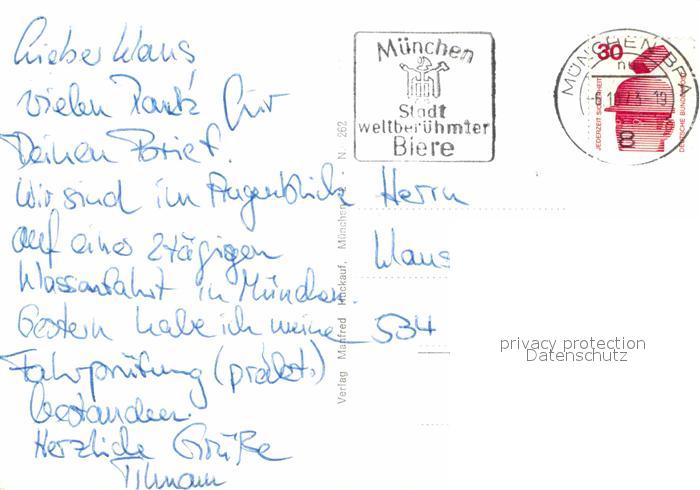 Lieber Klaus,
vielen Dank für
Deinen Brief.
Wir sind im Augenblick
auf einer 2tägigen
Klassenfahrt in München.
Gestern habe ich meine
Fahrprüfung (prakt.)
bestanden.
Herzliche Grüße
Tilmann
Verlag Manfred Huckauf, München N. 262
München
Stadt
weltberühmter
Biere
MÜNCHEN BPA
30
JEDERZEIT SICHERHEIT
DEUTSCHE BUNDESPOST
8
Herrn
Klaus
534
privacy protection
Datenschutz